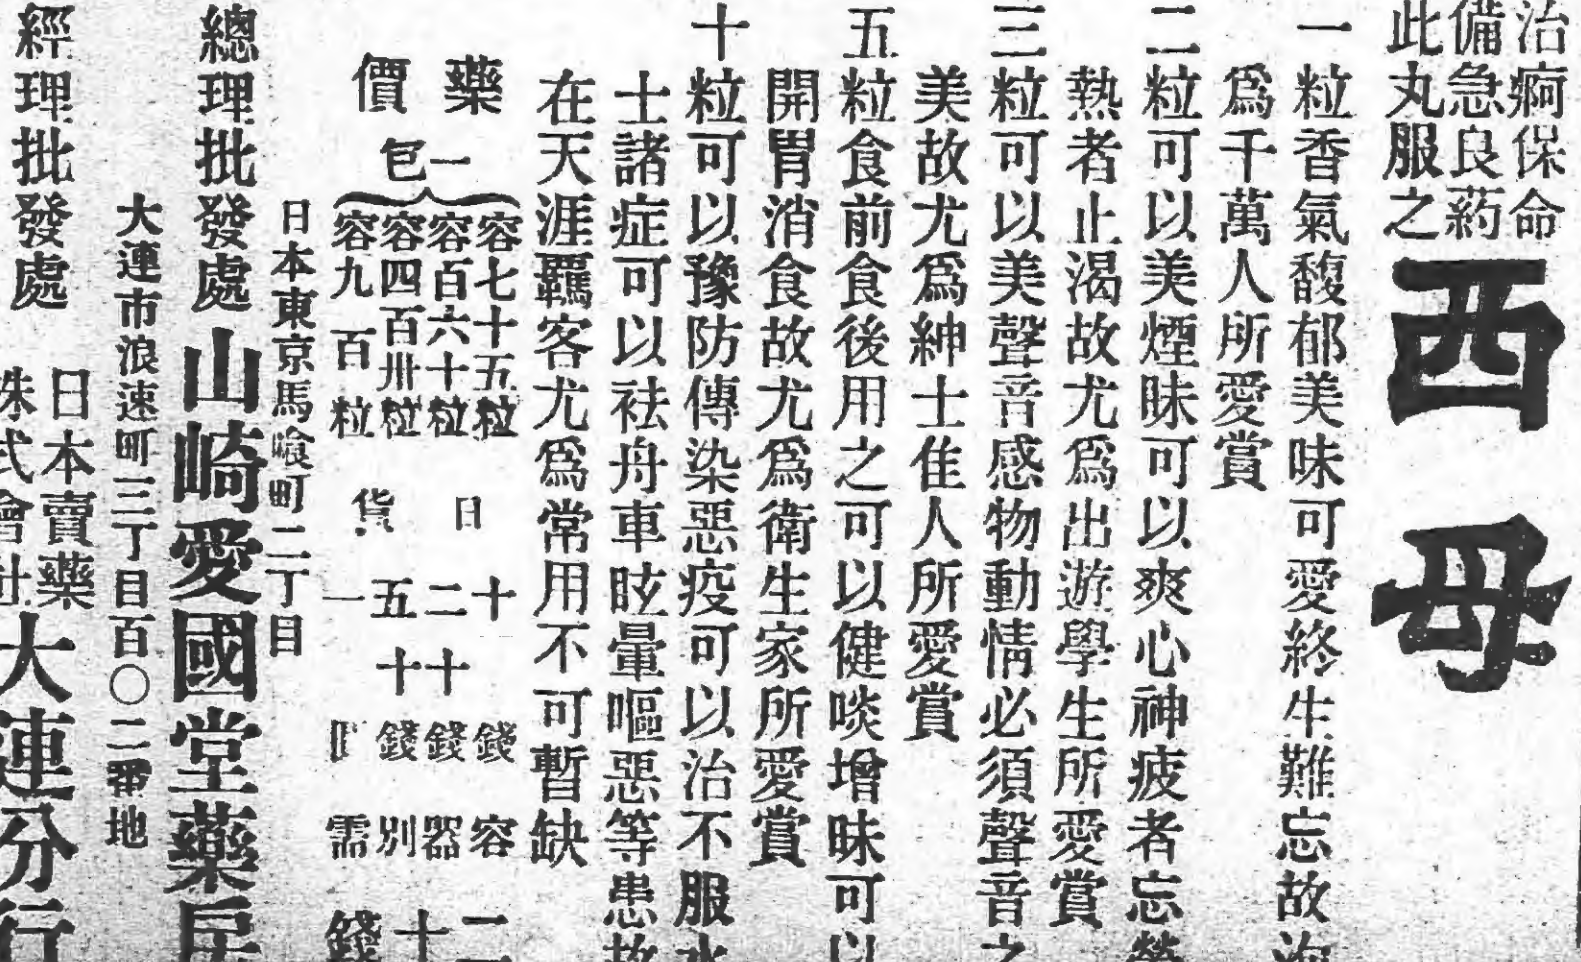 治痾保命
備急良药
此丸服之
西母
一粒香氣馥郁美味可愛終生難忘故
爲千萬人所愛賞
二粒可以美煙味可以爽心神疲者忘勞
熱者止渴故尤爲出遊學生所愛賞
三粒可以美聲音感物動情必須聲音之
美故尤爲紳士佳人所愛賞
五粒食前食後用之可以健啖增味可以
開胃消食故尤爲衛生家所愛賞
十粒可以豫防傳染惡疫可以治不服水
士諸症可以祛舟車眩暈嘔惡等患故
在天涯羈客尤爲常用不可暫缺
藥價
一包
容七十五粒
容百六十粒
容四百卅粒
容九百粒
日貨
十錢
二十錢
五十錢
一
容器別需
二十錢
日本東京馬喰町二丁目
總理批發處 山崎愛國堂藥房
大連市浪速町三丁目百〇二番地
經理批發處 日本賣藥株式會社大連分行